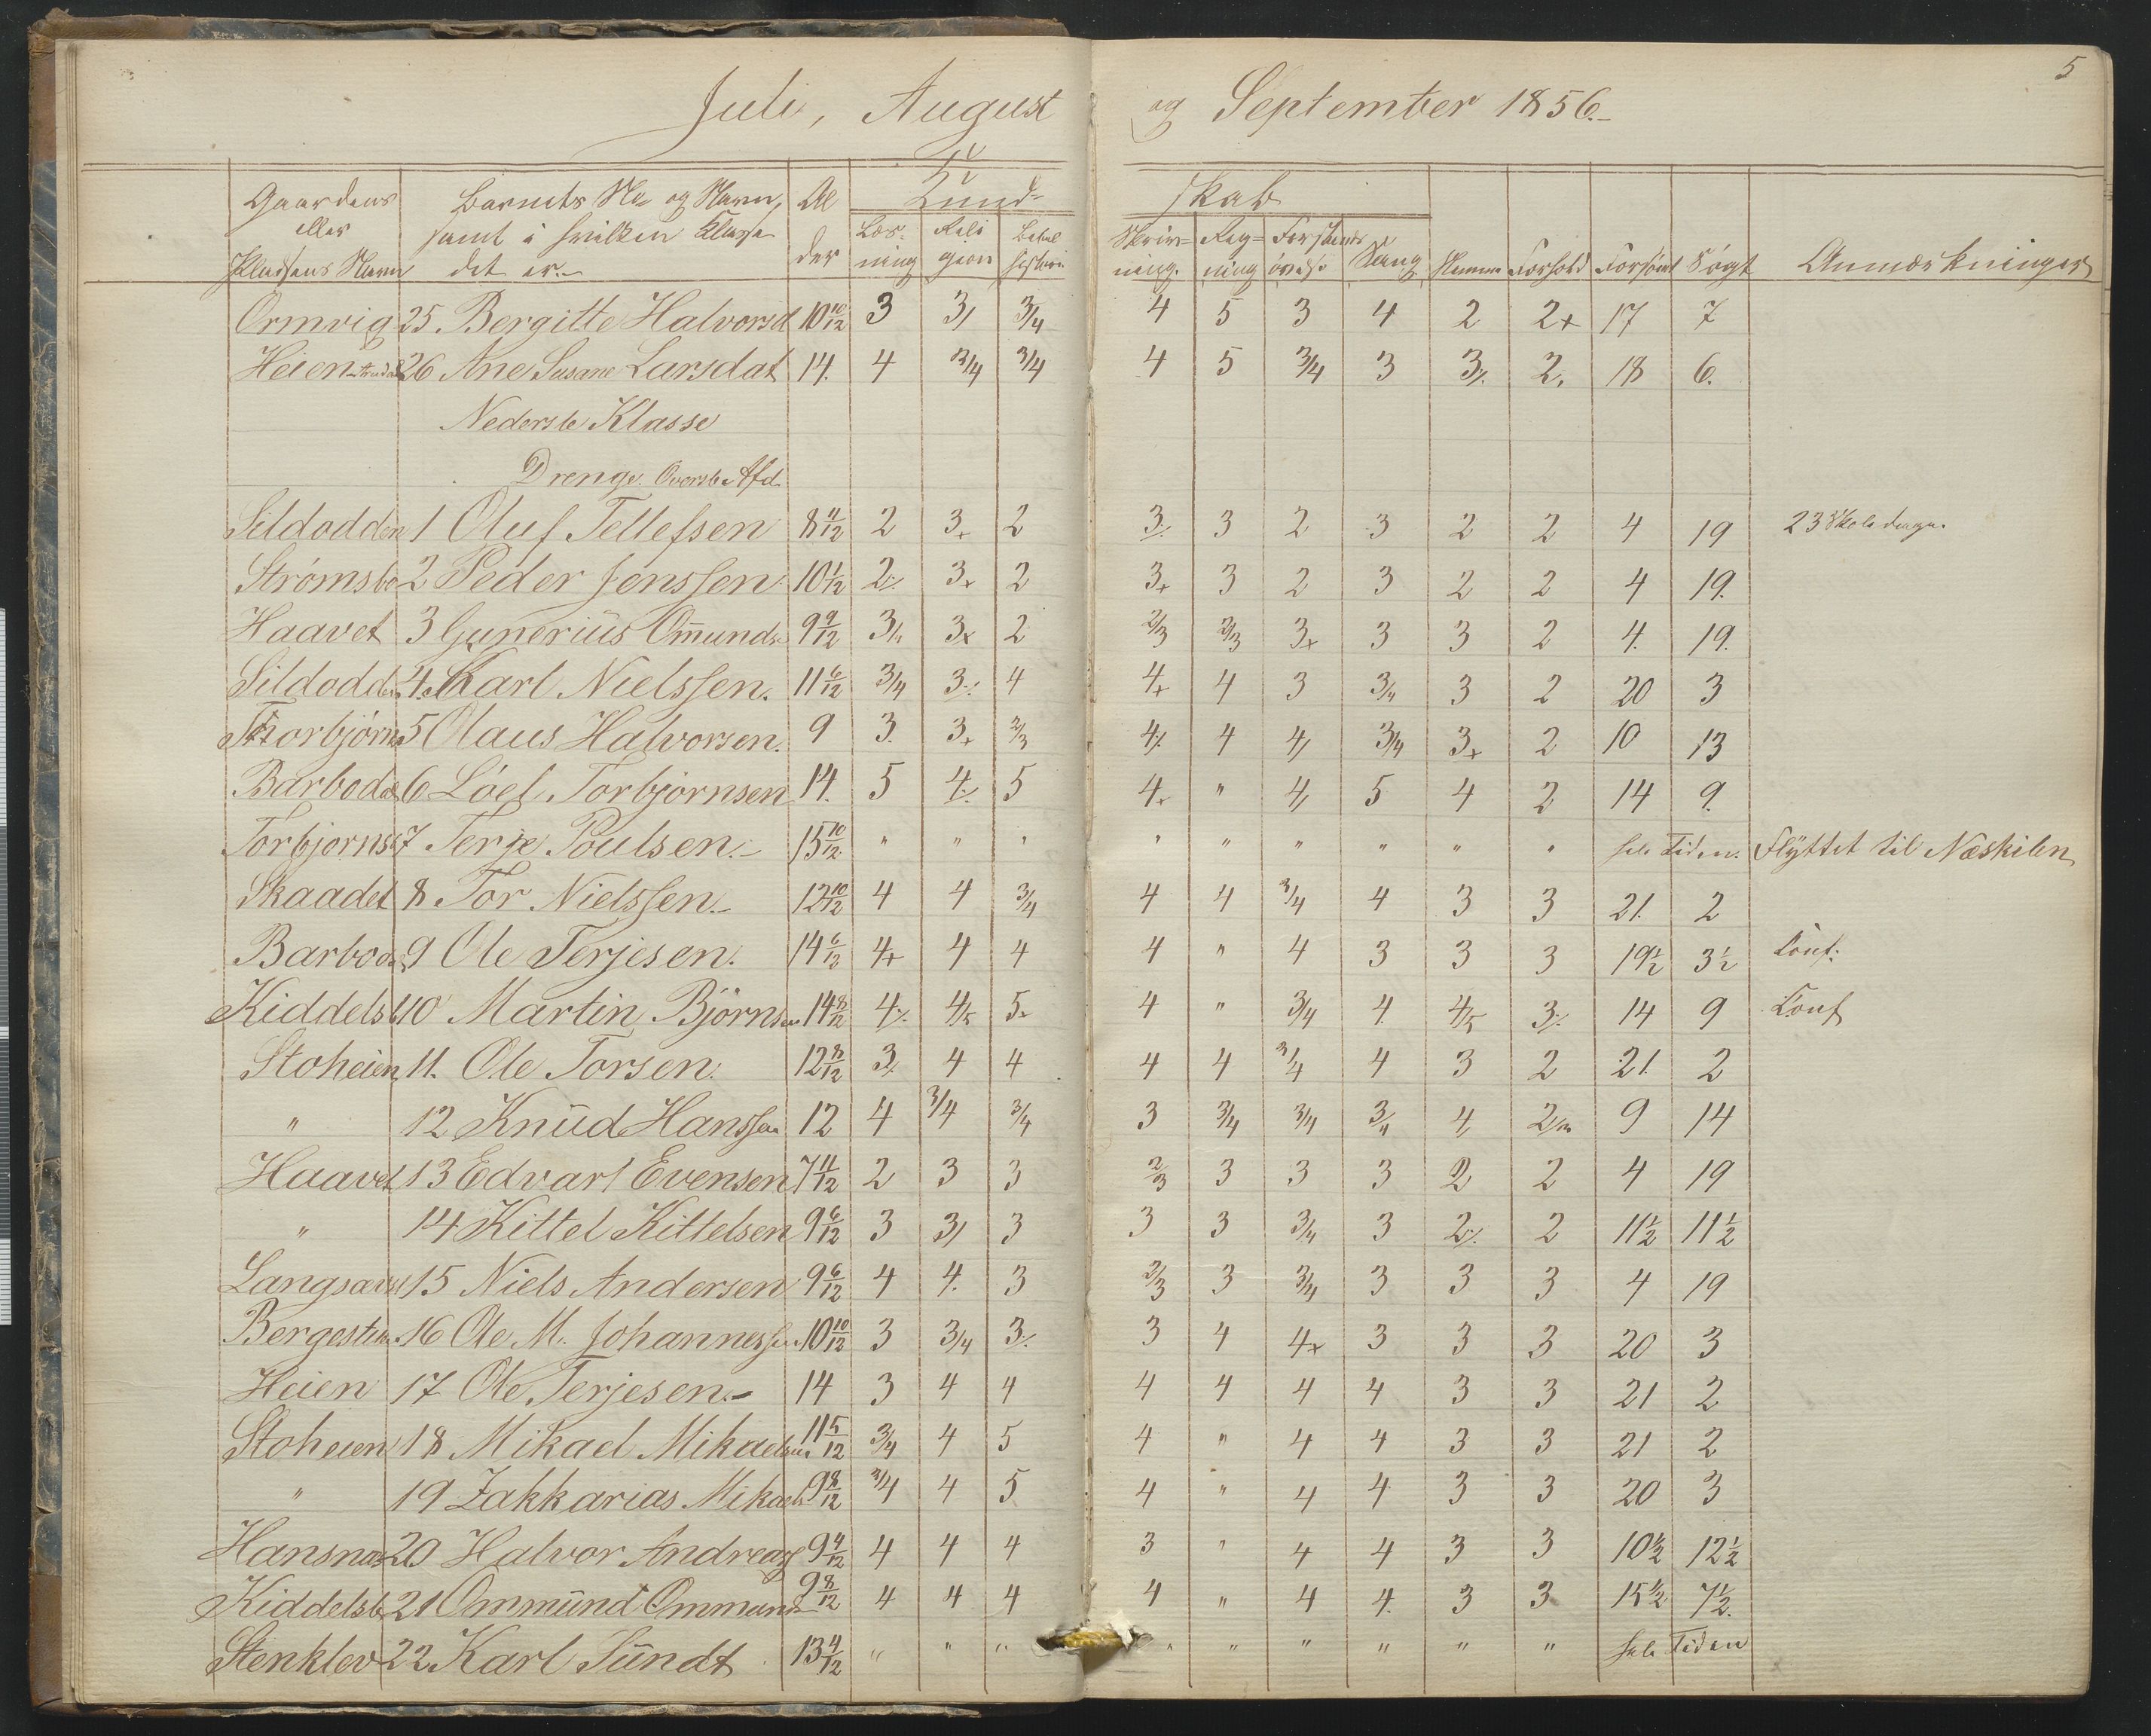 5
Juli, August og September 1856.
Kund= skab
Gaardens eller Pladsens Navn | Barnets No og Navn, samt i hvilken Klasse det er. | Al der | Læs= ning | Reli gion | Bibel histori | Skriv= ning. | Reg= ning | Forstands øvelse | Sang | Nemme | Forhold | Forsømt | Søgt | Anmærkninger
Ormvig 25. Bergitte Halvorsd 10 10/12 3 3/ 3/4 4 5 3 4 2 2+ 17 7
Heien 26 Ane Susane Larsdat 14. 4 3/4 3/4 4 5 3/4 3 3⁒ 2. 18 6.
Nederste Klasse
Drenge. Overste Afd.
Sildodden 1 Oluf Tellefsen 8 11/12 2 3+ 2 3⁒ 3 2 3 2 2 4 19 23 Skoledage.
Strømsbo 2 Peder Jenssen 10 1/12 2⁒ 3+ 2 3+ 3 2 3 2 2 4 19.
Haavet 3 Gunerius Om̄unds 9 9/12 3/4 3+ 2 2/3 2/3 3+ 3 3 2 4. 19.
Sildodden 4. Karl Nielssen. 11 6/12 3/4 3⁒ 4 4+ 4 3 3/4 3 2 20 3
Thorbjörns 5 Olaus Halvorsen. 9 3. 3+ 2/3 4⁒ 4 4/ 3/4 3+ 2 10 13
Barbodal 6 Löel Torbjörnsen 14. 5 4⁒ 5 4+ " 4/ 5 4 2 14 9.
Torbjornsb 7 Terje Poulsen. 15 10/12 " " " " " " " " " hele Tiden. Flÿttet til Næskilen
Skaadel 8 Tor Nielssen. 12 10/12 4 4 3/4 4 4 3/4 4 3 3 21. 2
Barbodal 9 Ole Terjesen. 14 6/12 4+ 4 4 4 " 4 3 3 3 19½ 3½ Conf:
Kiddelsb 10 Martin Björnsen 14 8/12 4⁒ 4/5 5+ 4 " 3/4 4. 4/5 3⁒ 14 9 Conf
Stoheien 11. Ole Torsen. 12 8/12 3⁒ 4 4 4 4 3/4 4 3 2 21. 2
" 12 Knüd Hanssen 12 4 3/4 3/4 3 3/4 3/4 3/4 4/ 2/3 9 14
Haavet 13 Edvart Evensen 7 11/12 2 3 3 2/3 3 3 3 2 2 4 19
" 14 Kittel Kittelsen 9 6/12 3 3/ 3 3 3 3/4 3 2⁒ 2 11½ 11½
Langsæv 15 Niels Andersen 9 6/12 4 4. 3 2/3 3 3/4 3 3 3 4 19
Bergesten 16 Ole M. Johannessen 10 10/12 3 3/4 3⁒ 3 4 4+ 3 3 3 20 3
Heien 17 Ole Terjesen. 14 3 4 4 4 4 4 4 3 3 21 2
Stoheien 18 Mikael Mikaelsen. 11 5/12 3/4 4 5 4 " 4 4 3 3 21 2
" 19 Zakkarias Mikaels 9 8/12 3/4 4 5 4 " 4 4 3 3 20 3
Hansnæs 20 Halvor Andreass 9 4/12 4 4 4 3 " 4 4 3 3 10½ 12½
Kiddelsb 21 Ommünd Ommunds 9 8/12 4 4 4 4 " 4 4. 3 3 15½ 7½.
Stenklev 22. Karl Sündt 13 4/12 " " " " " " " " " hele Tiden